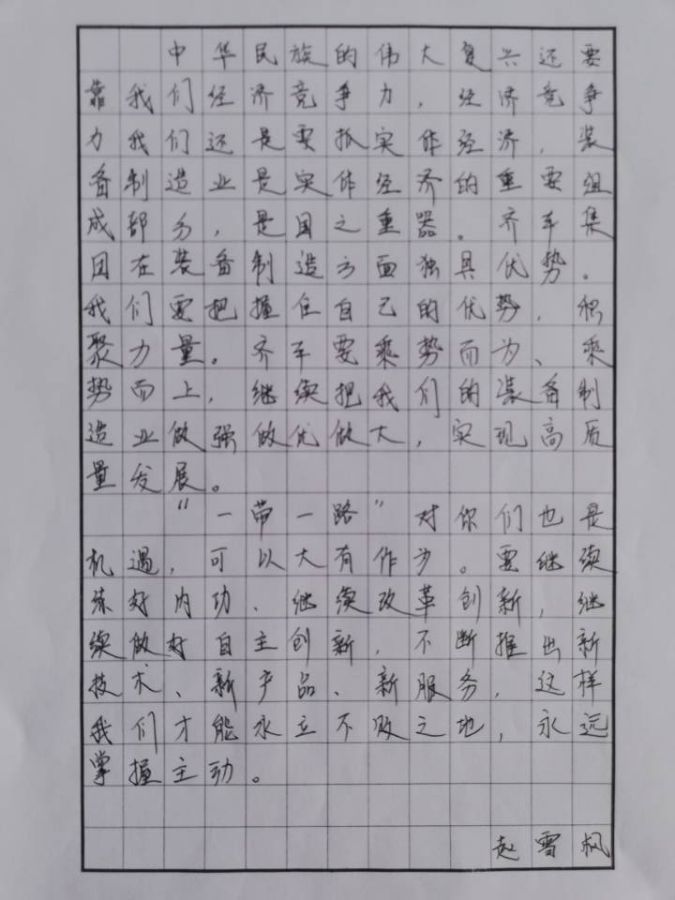 中华民族的伟大复兴还要
靠我们经济竞争力，经济竞争
力我们还是要抓实体经济，装
备制造业是实体经济的重要组
成部分，是国之重器。齐车集
团在装备制造方面独具优势。
我们要把握住自己的优势，积
聚力量。齐车要乘势而为、乘
势而上，继续把我们的装备制
造业做强做优做大，实现高质
量发展。
“一带一路”对你们也是
机遇，可以大有作为。要继续
练好内功、继续改革创新，继
续做好自主创新，不断推出新
技术、新产品、新服务，这样
我们才能永立不败之地，永远
掌握主动。
赵雪枫